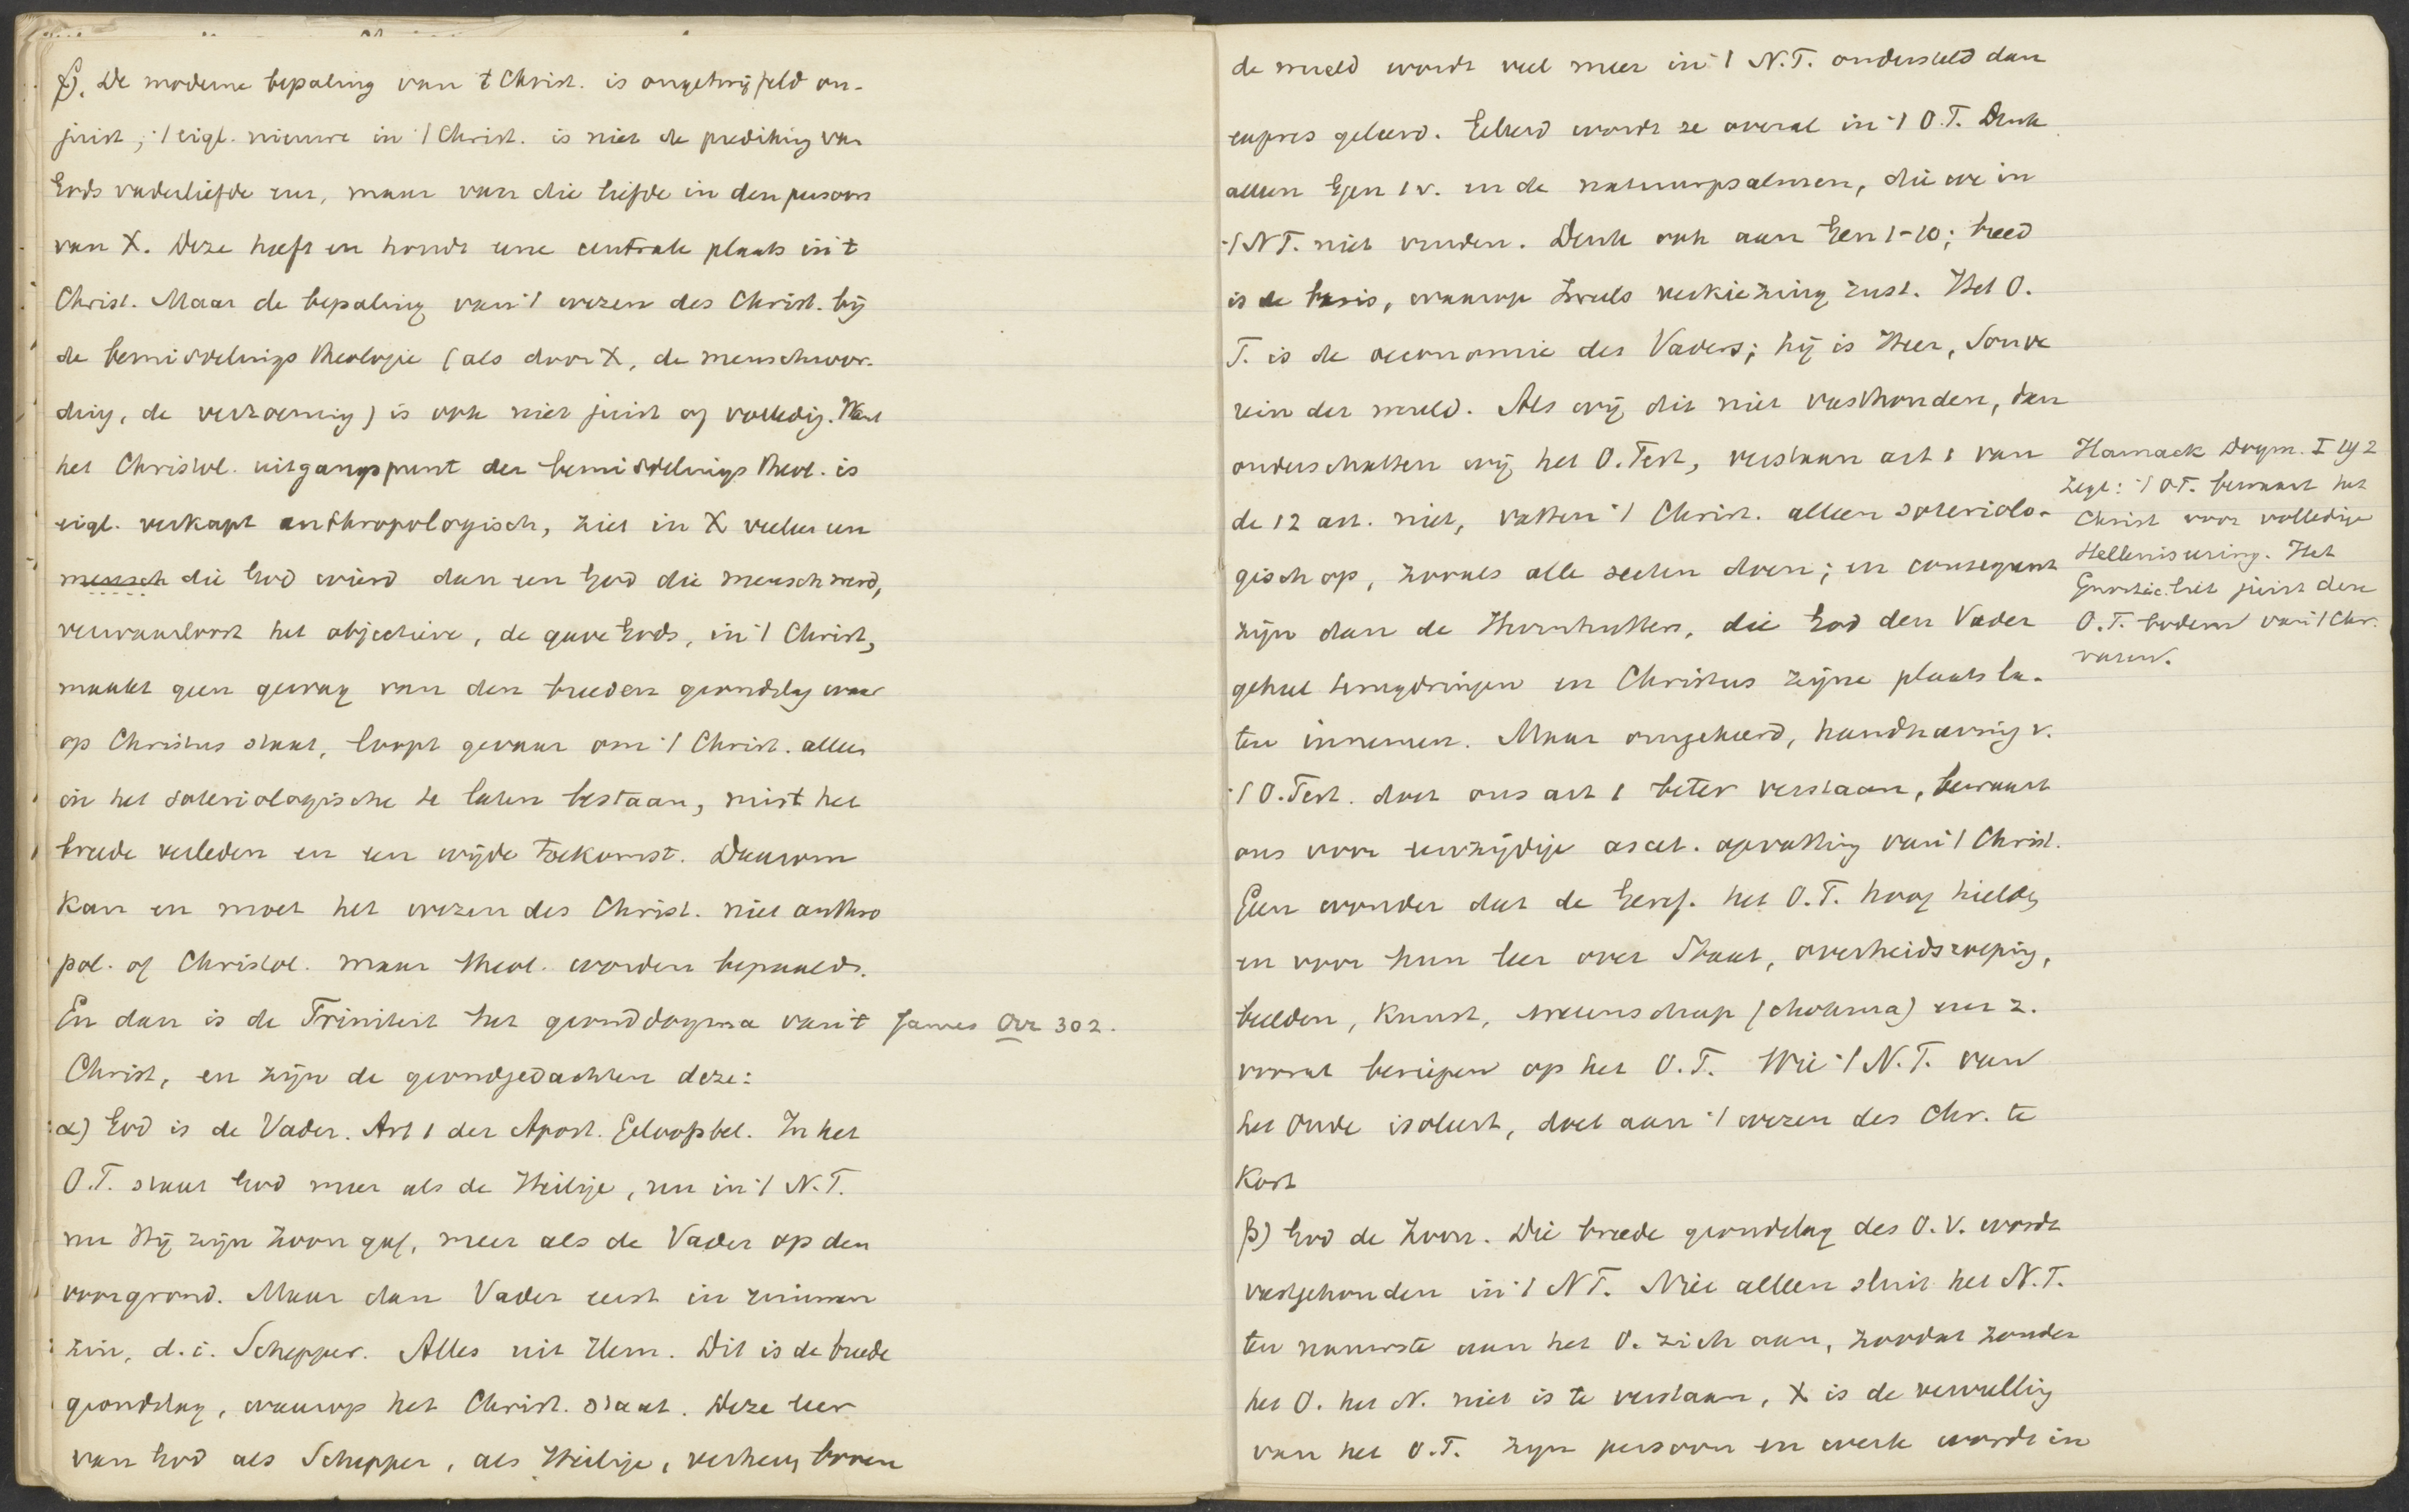 f). De moderne bepaling van 't Christ. is ongetwijfeld on-
juist; 't eigl. nieuwe in 't Christ. is niet de prediking van
Gods vaderliefde enz, maar van die liefde in den persoon
van X. Deze heeft en houdt eene centrale plaats in 't
Christ. Maar de bepaling van 't wezen des Christ. bij
de bemiddelings theologie (als door X, de menschwor-
ding, de verzoening) is ook niet juist of volledig. Want
het Christol. uitgangspunt der bemiddelings theol. is
eigl. verkapt anthropologisch, ziet in X veeleer een
mensch die God wierd dan een God die mensch werd,
verwaarloost het objectieve, de gave Gods, in 't Christ,
maakt geen gewag van den breeden grondslag waar
op Christus staat, loopt gevaar om 't Christ. alleen
in het soteriologische te laten bestaan, mist het
breede verleden en een wijde toekomst. Daarom
kan en moet het wezen des Christ. niet anthro
pol. of Christol. maar theol. worden bepaald.
En dan is de Triniteit het gronddogma van 't
James Orr 302.
Christ, en zijn de grondgedachten deze:
α) God is de Vader. Art 1 der Apost. Geloofsbel. In het
O.T. staat God meer als de Heilige, nu in 't N.T.
nu Hij zijn Zoon gaf, meer als de Vader op den
voorgrond. Maar dan Vader eerst in ruimen
zin, d.i. Schepper. Alles uit Hem. Dit is de breede
grondslag, waarop het Christ. staat. Deze leer
van God als Schepper, als Heilige, verheven boven
de wereld wordt veel meer in 't N.T. ondersteld dan
expres geleerd. Geleerd wordt ze overal in 't O.T. Denk
alleen Gen 1 v. en de natuurpsalmen, die we in
't NT. niet vinden. Denk ook aan Gen 1-10; breed
is de basis, waarop Israels verkiezing rust. Het O.
T. is de oeconomie des Vaders; hij is Heer, Souve
rein der wereld. Als wij dit niet vasthouden, dan
onderschatten wij het O. Test, verstaan art 1 van
de 12 art. niet, vatten 't Christ. alleen soteriolo-
gisch op, zooals alle secten doen; en consequent
zijn dan de Hernhutters, die God den Vader
geheel terugdringen en Christus zijne plaats la-
ten innemen. Maar omgekeerd, handhaving v.
't O. Test. doet ons art 1 beter verstaan, bewaart
ons voor eenzijdige ascet. opvatting van 't Christ.
Geen wonder dat de Geref. het O.T. hoog hielden
en voor hun leer over Staat, overheidsroeping,
beelden, kunst, wetenschap (chokma) enz.
vooral beriepen op het O.T. Wie 't N.T. van
het Oude isoleert, doet aan 't wezen des Chr. te
kort
Harnack Dogm. I
zegt: 't O.T. bewaart het
Christ voor volledige
Helleniseering. Het
Gnostic. liet juist deze
O.T. bodem van 't Chr.
varen.
β) God de Zoon. Die breede grondslag des O.V. wordt
vastgehouden in 't NT. Niet alleen sluit het N.T.
ten nauwste aan het O. zich aan, zoodat zonder
het O. het N. niet is te verstaan, X is de vervulling
van het O.T. Zijn persoon en werk wordt in